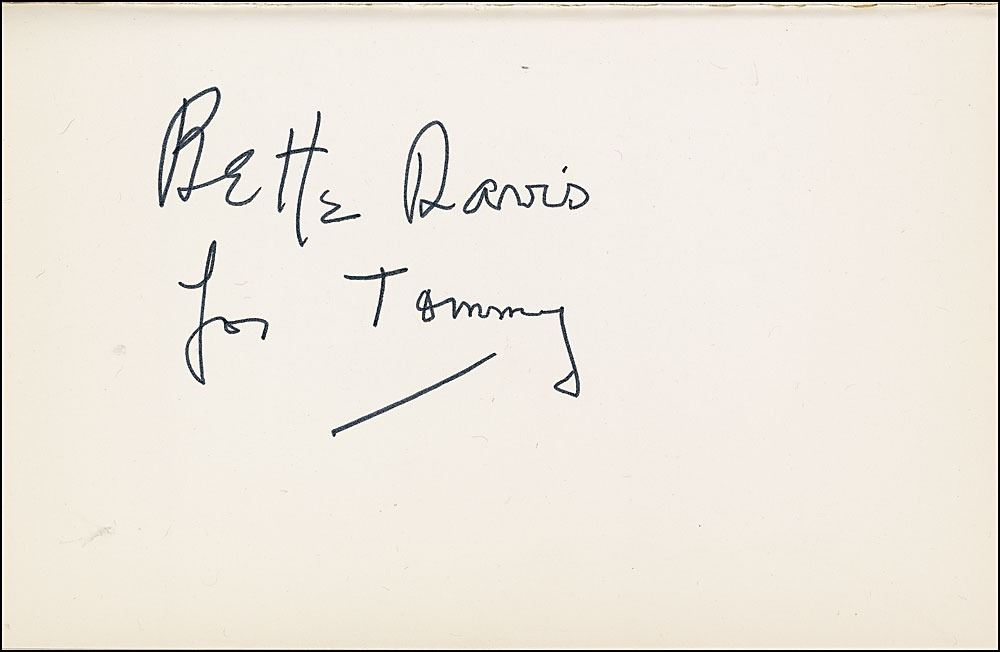 Bette Davis
for Tommy